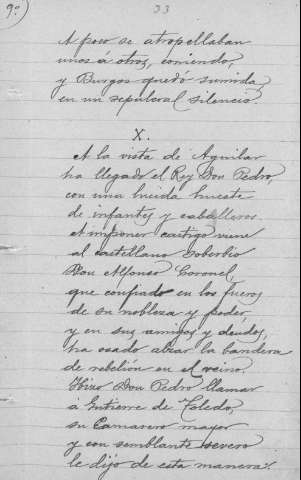 9º)
33
A poco se atropellaban
unos á otros, corriendo,
y Burgos quedó sumida
en un sepulcral silencio.
X.
A la vista de Aguilar
ha llegado el Rey Don Pedro,
con una lucida hueste
de infantes y caballeros.
A imponer castigo viene
al castellano soberbio
Don Alfonso Coronel,
que confiado en los fueros
de su nobleza y poder,
y en sus amigos y deudos,
ha osado alzar la bandera
de rebelión en el reino.
Hizo Don Pedro llamar
á Gutierre de Toledo,
su Camarero mayor
y con semblante severo
le dijo de esta manera: